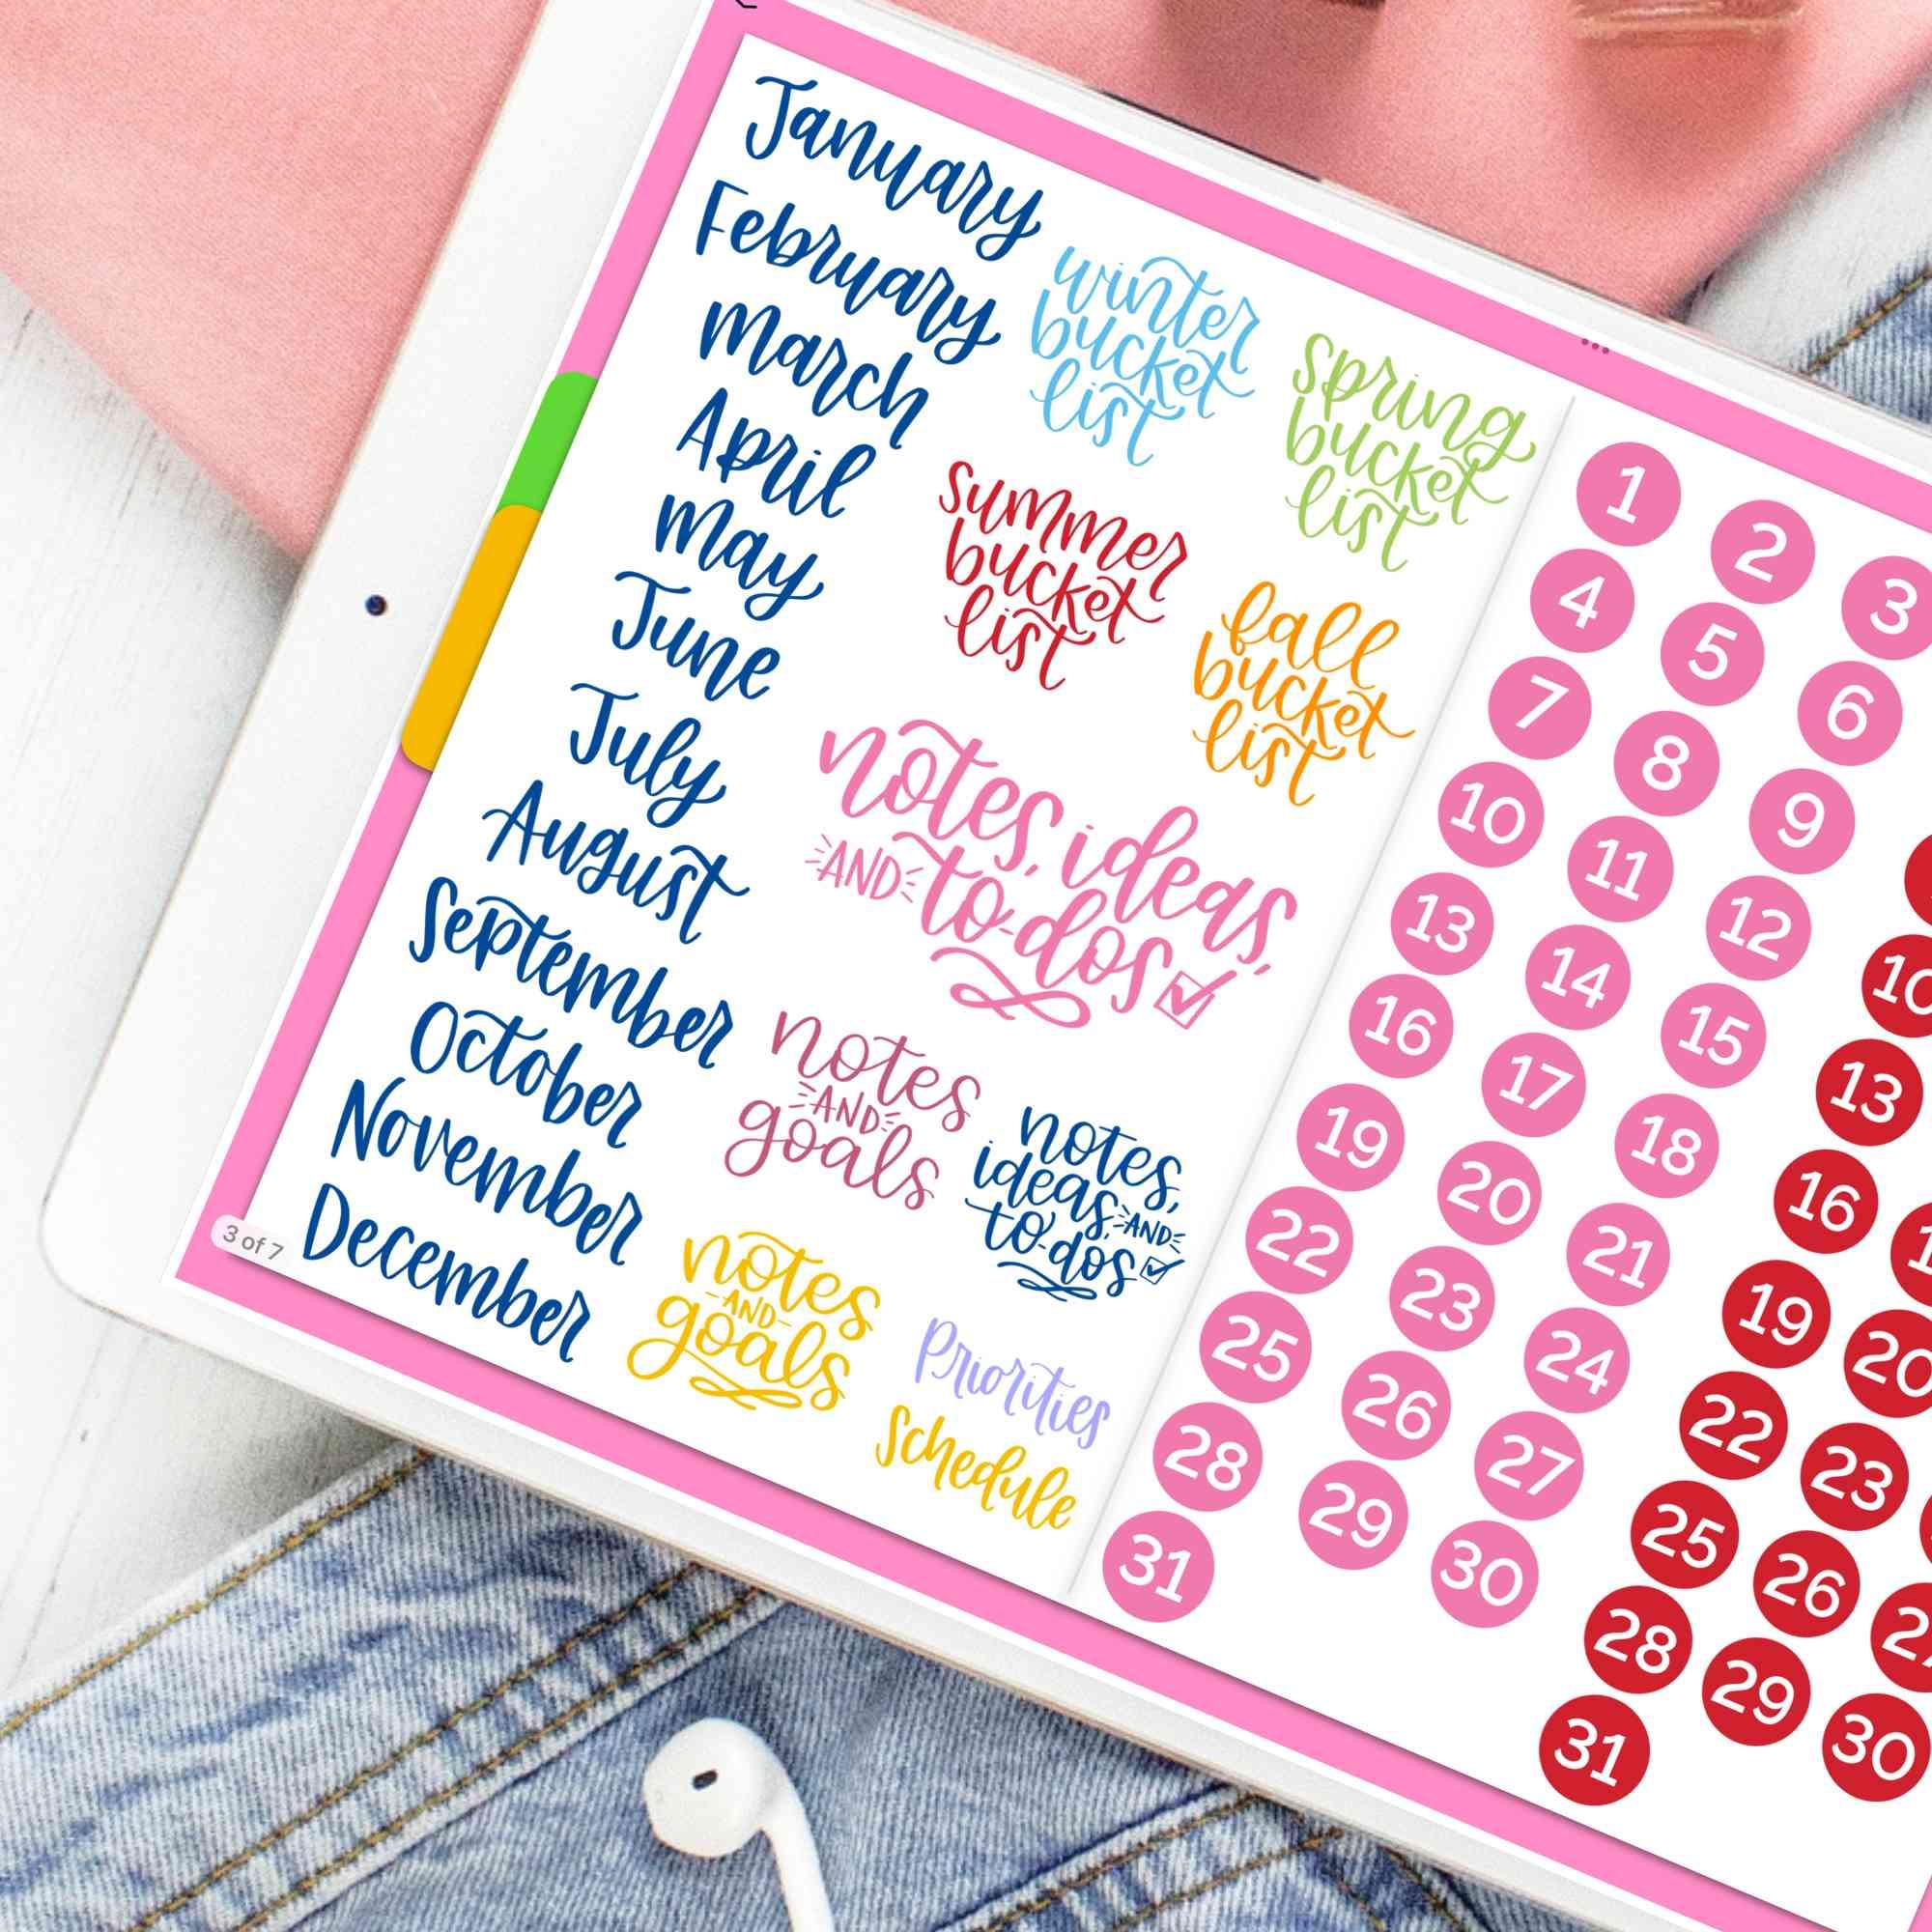 January
February
March
April
May
June
July
August
September
October
November
December
winter
bucket
list
spring
bucket
list
summer
bucket
list
fall
bucket
list
notes, ideas,
AND to-dos
notes
AND
goals
notes,
ideas, AND
to-dos
notes
AND
goals
Priorities
Schedule
3 of 7
1 2 3
4 5 6
7 8 9
10 11 12
13 14 15
16 17 18
19 20 21
22 23 24
25 26 27
28 29 30
31
10
13
16
19 20
22 23
25 26
28 29 30
31